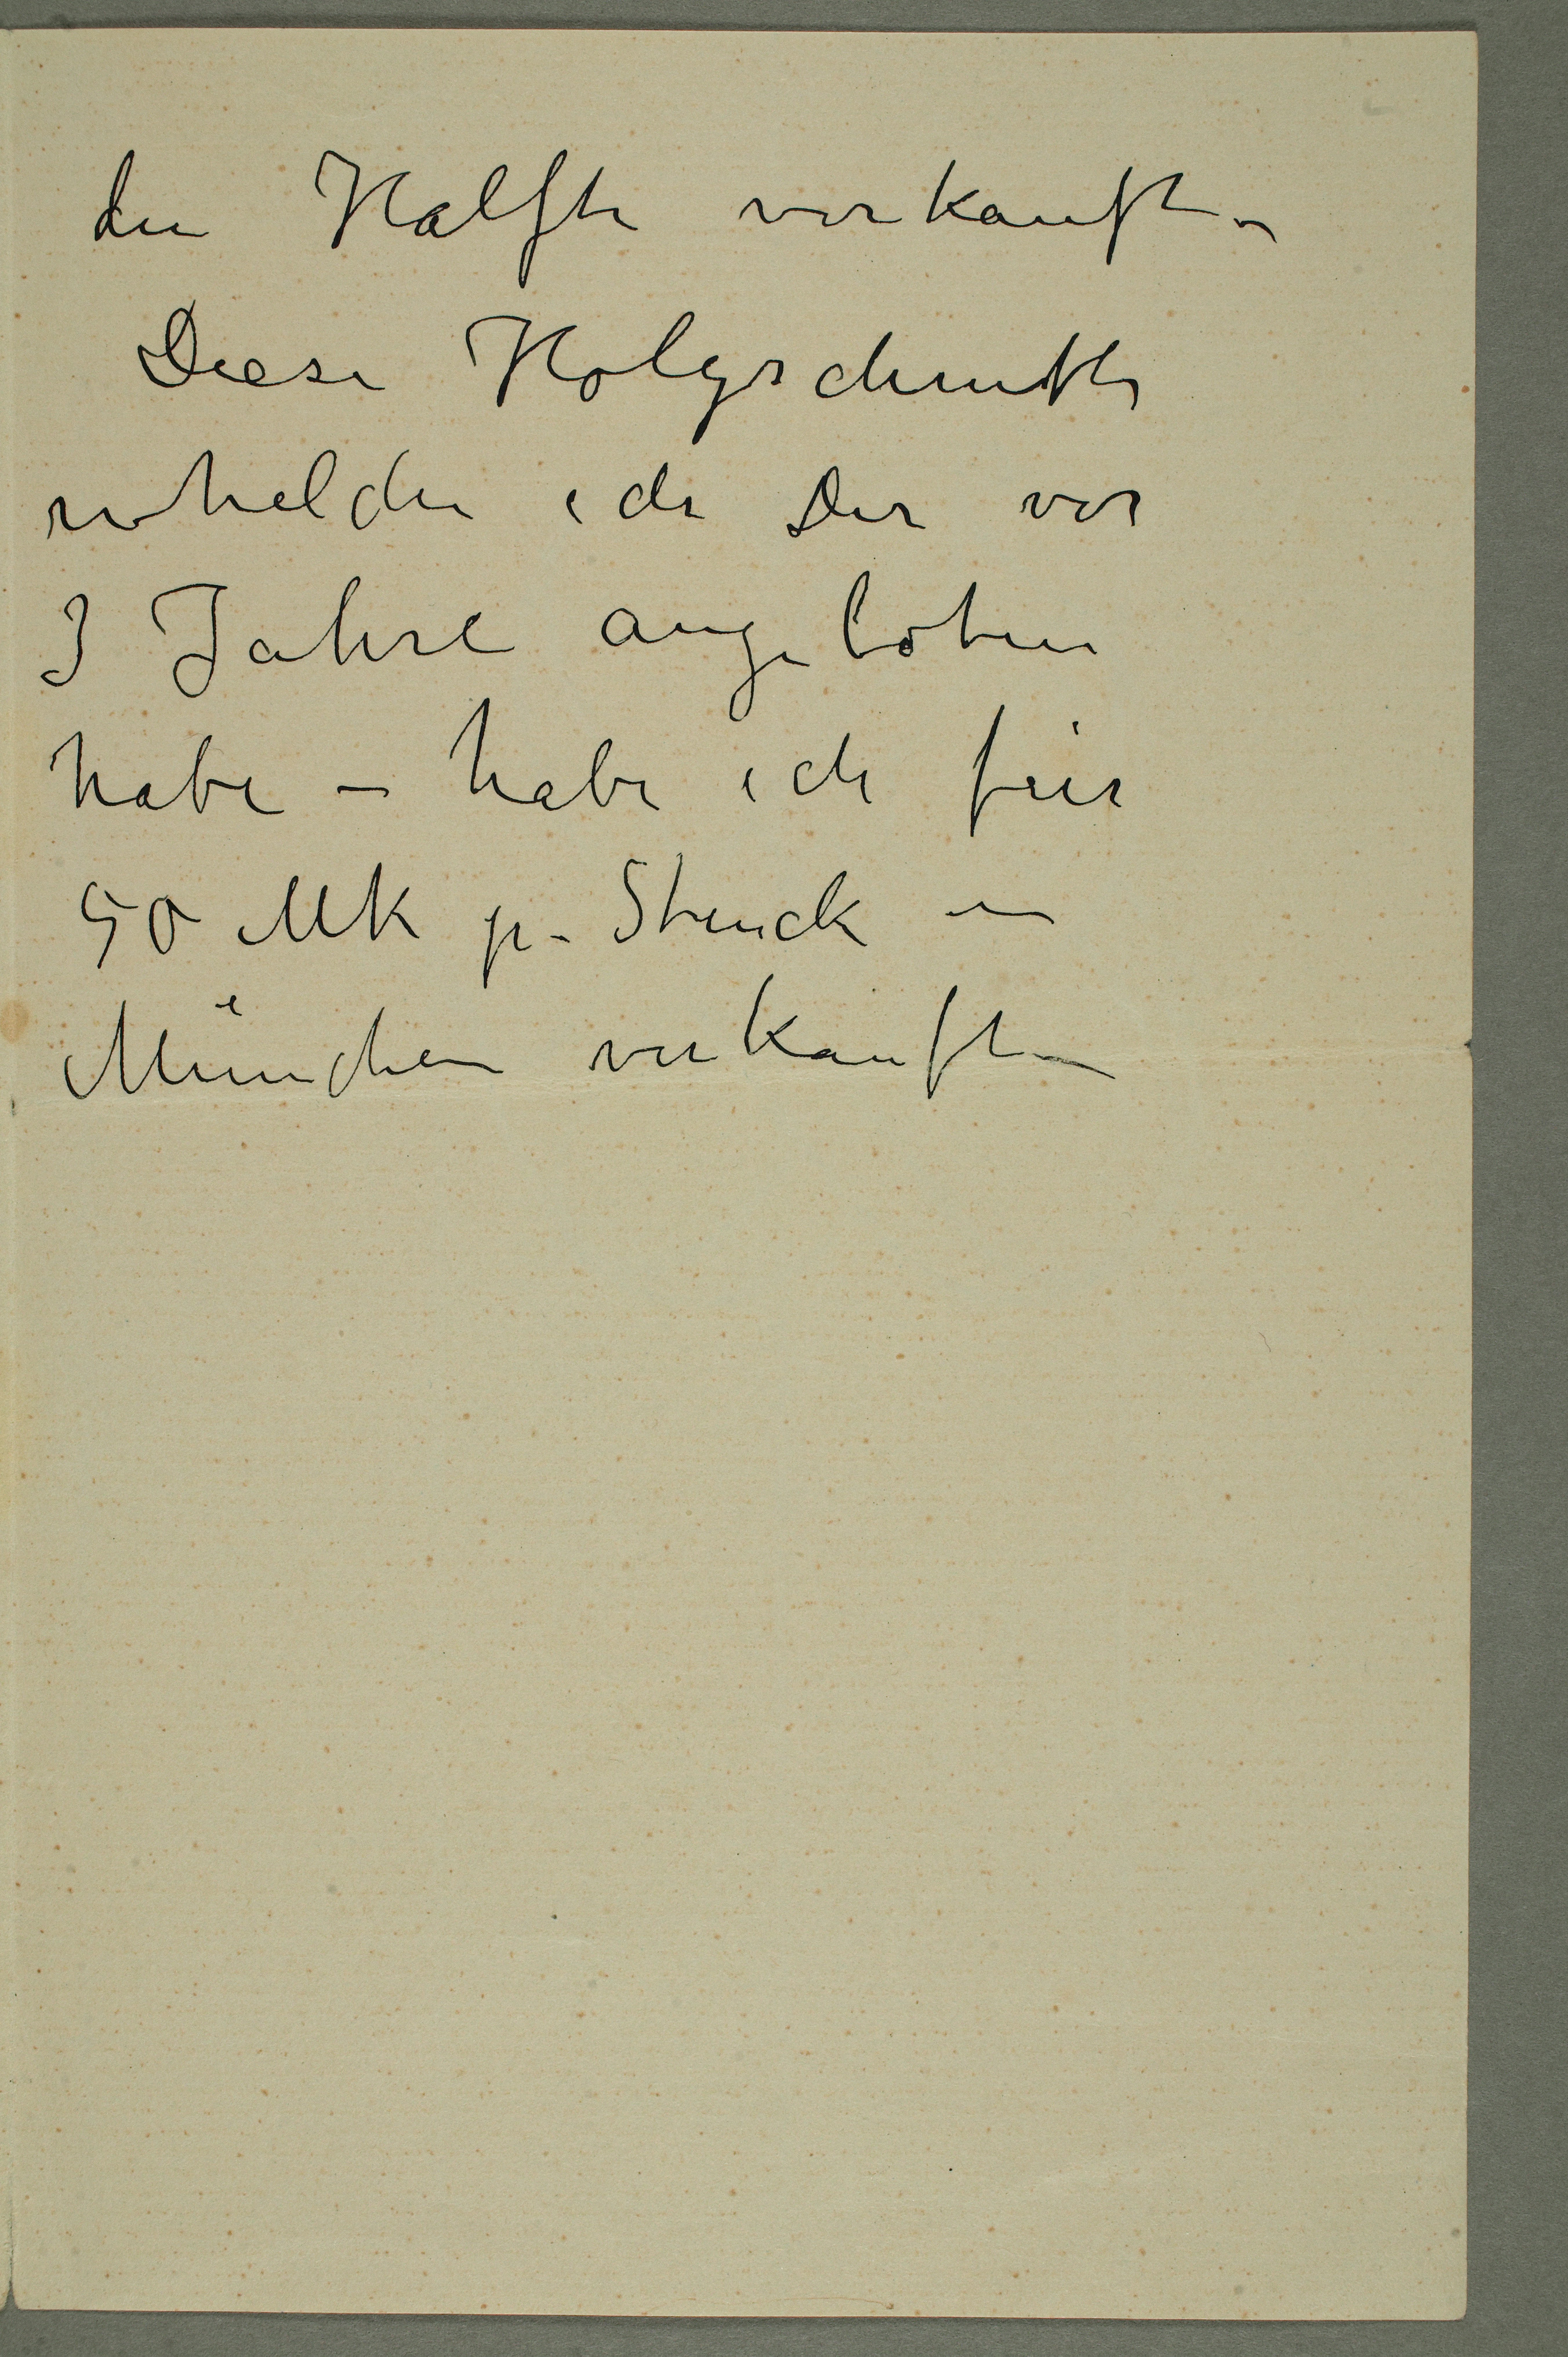 den Halfte verkauft –
Diese Holzschnitte
whelche ich Dir vor
3 Jahre angeboten
habe – habe ich für
50 Mk pr. Stuck in
München verkauft –